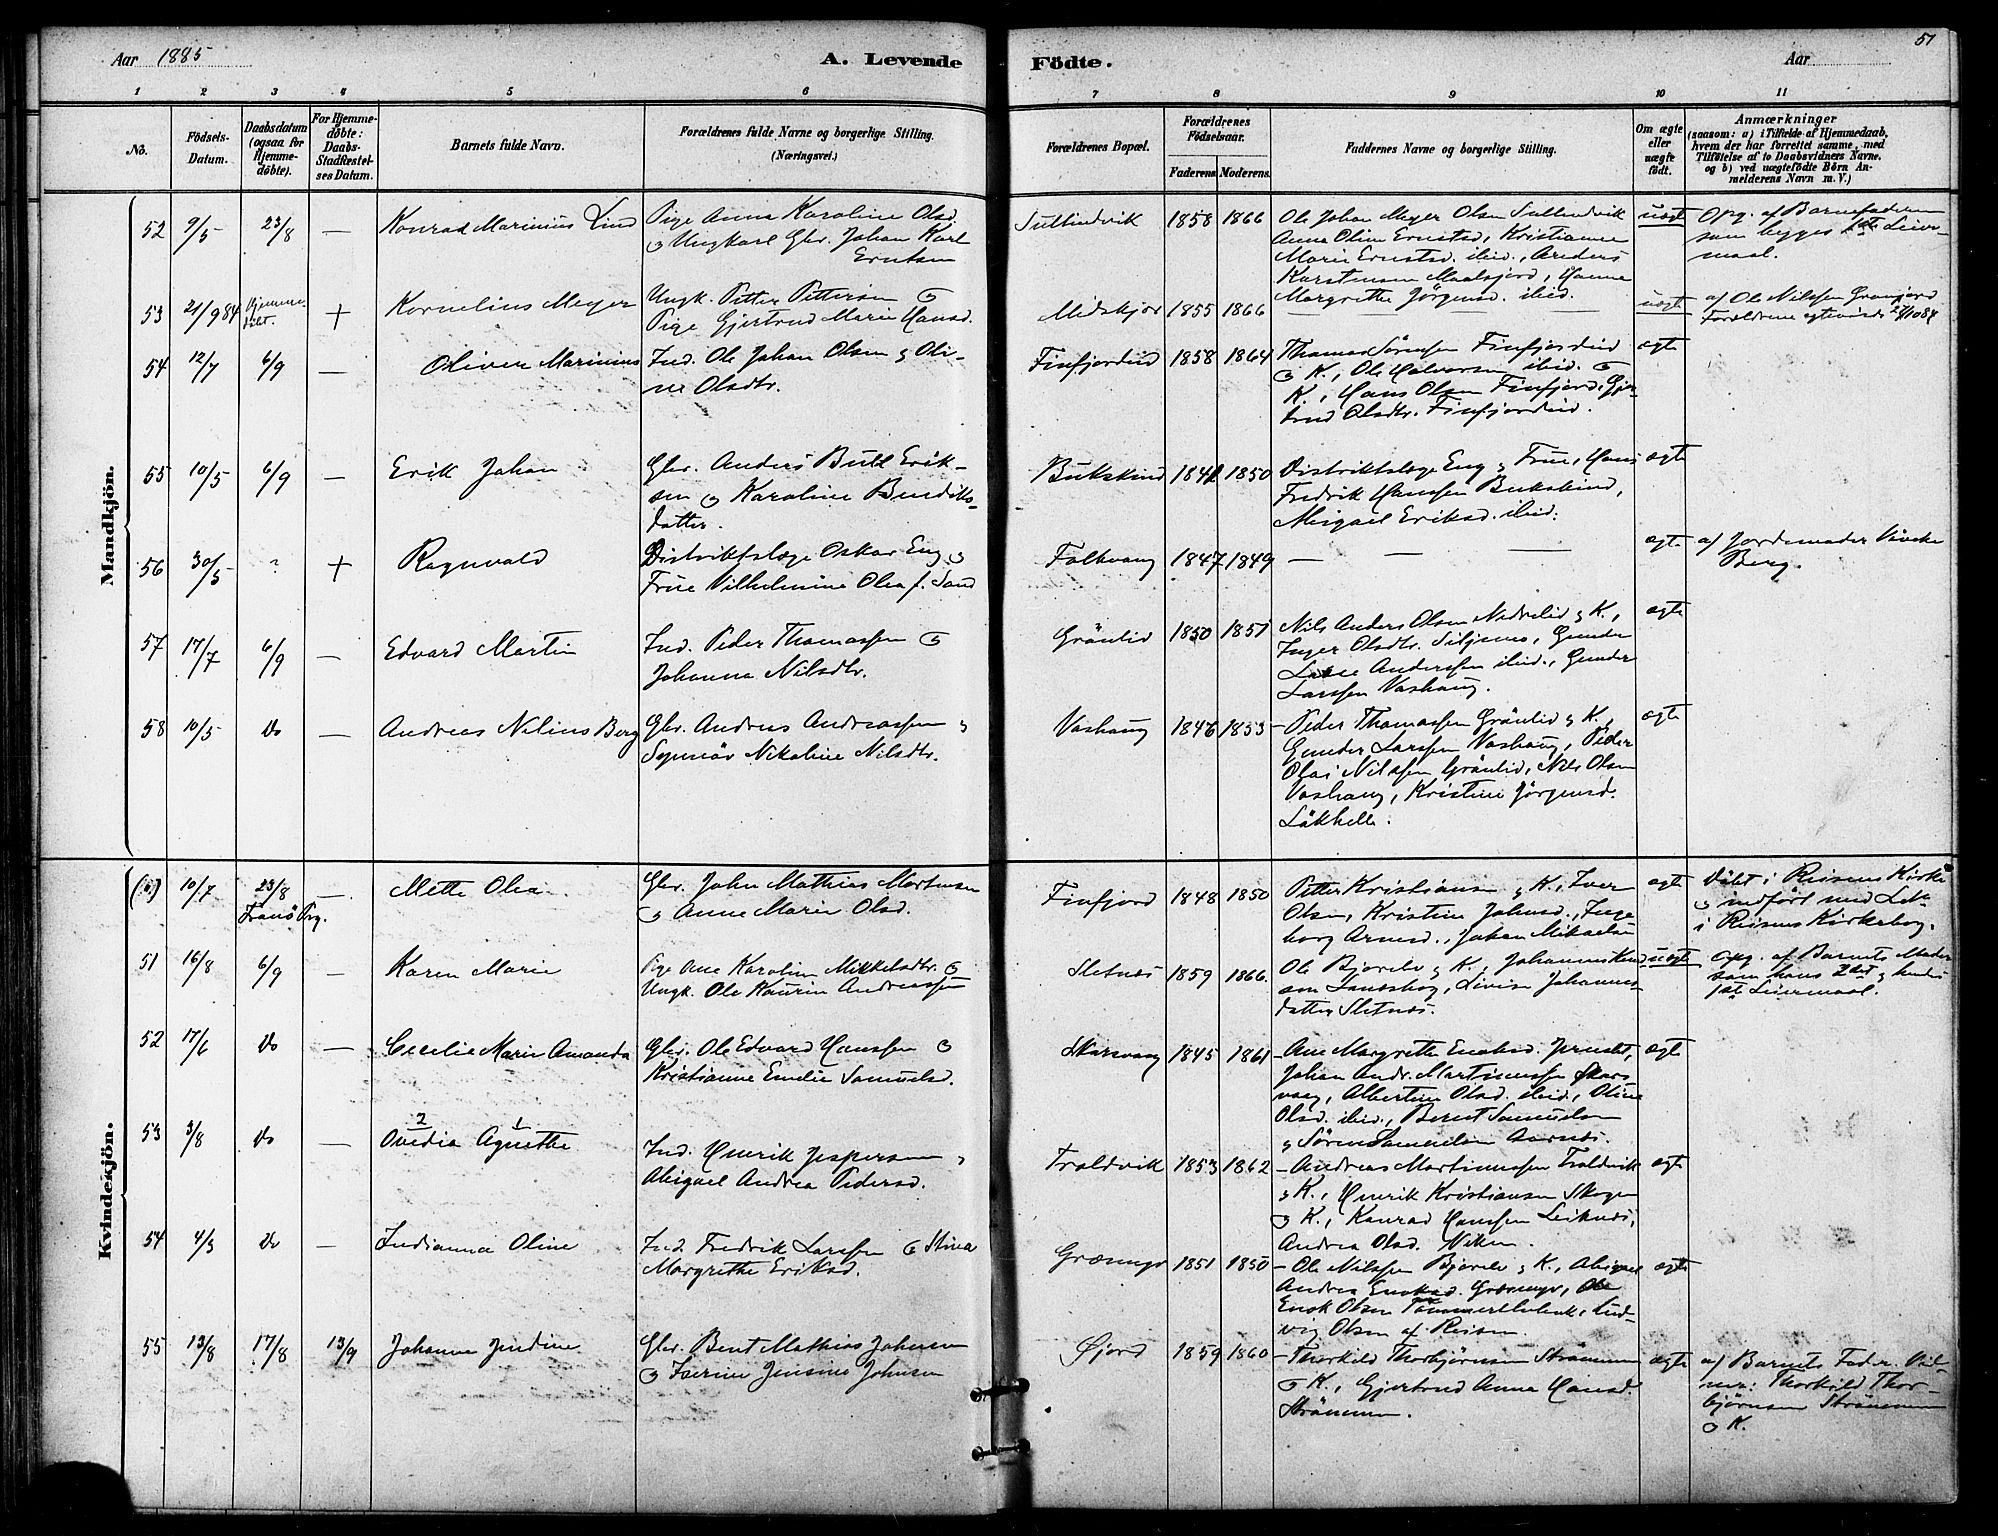 Aar 1885
A. Levende Födte.
Aar
51
1 2 3 4 5 6 7 8 9 10 11
No.
Födsels-Datum.
Daabsdatum (ogsaa for Hjemme-döbte).
For Hjemme-döbte: Daabs-Stadfæstel-ses Datum.
Barnets fulde Navn.
Forældrenes fulde Navne og borgerlige Stilling. (Næringsvei.)
Forældrenes Bopæl.
Forældrenes Födselsaar.
Faderens. Moderens.
Faddernes Navne og borgerlige Stilling.
Om ægte eller uægte födt.
Anmærkninger
(saasom: a) i Tilfælde af Hjemmedaab,
hvem der har forrettet samme, med
Tilföielse af to Daabsvidners Navne.
og b) ved uægtefödte Börn An-
melderens Navn m. V.)
Mandkjön.
52 9/5 23/8 — Konrad Marinius Lind
Pige Anna Karoline Olsd.
o Ungkarl Gbr. Johan Karl
Erntsen
Sultindvik 1858 1866
Ole Johan Meyer Olsen Sultindvik
Anna Olina Ernstsd, Kristianna
Marie Ernstsd. ibid., Anders
Karstensen Maalsjord, Hanna
Margrethe Jörgensd. ibid.
uægt
Opg. af Barnefaderen
som begges 1ste Leier-
maal.
53 21/9 84 Hjemme-döbt. + Kornelius Meyer
Ungk. Petter Pettersen o
Pige Gjertrud Marie Hansd.
Midskjær 1855 1866 — — —
uægte
af Ole Nilssen Granfjord
Forældrene egteviede 2/10 84
54 12/7 6/9 — Oliver Marinius
Ind. Ole Johan Olsen o Oli-
ne Olsdtr.
Finfjordeid 1858 1864
Thomas Sörensen Finfjordeid
o K., Ole Halvorsen ibid. o
K., Hans Olsen Finfjord, Gjer-
trud Olsdtr. Finfjordeid.
ægte
55 10/5 6/9 — Erik Johan
Gbr. Anders Bull Erik-
sen o Karoline Bendiks-
datter.
Bukskind 1841 1850
Distriktslæge Eng o Frue, Hans
Fredrik Hanssen Bukskind,
Abigael Eriksd. ibid.
ægte
56 30/5 ? + Ragnvald
Distriktslæge Oskar Eng o
Frue Vilhelmine Olea f. Sand
Folkvang 1847 1849 — — —
ægte
af Jordemoder Vivike
Berg.
57 17/7 6/9 — Edvard Martin
Ind. Peder Thomassen o
Johanna Nilsdtr.
Grönlid 1850 1851
Nils Anders Olsen Nedrelid o K.,
Inger Olsdtr. Siljenes, Gunder
Lasse Anderssen ibid., Gunder
Larssen Vashaug.
ægte
58 10/5 Do — Andreas Nilius Berg
Gbr. Andreas Andreassen o
Synnöv Nikoline Nilsdtr.
Vashaug 1846 1853
Peder Thomassen Grönlid o K.,
Gunder Larssen Vashaug, Peder
Olai Nilssen Grönlid, Nils Olsen
Vashaug, Kristine Jörgensd.
Läkhelle.
ægte
Kvindekjön.
10/7 23/8 — Mette Olea
Tranö Prg.
Gbr. John Mathias Mortensen
o Anne Marie Olsd.
Finfjord 1848 1850
Petter Kristiansen o K., Iver
Olsen, Kristine Johnsd., Inge-
borg Arnesd., Johan Mikaelsen
ægte
Döbt i Reisens Kirke
o indfört med Lit.
i Reisens Kirkebog.
51 16/8 6/9 — Karen Marie
Pige Ane Karoline Mikkelsdtr. o
Ungk. Ole Kaurin Andreassen
Sletnæs 1859 1866.
Ole Bjorelv o K., Johannes Knud-
sen Landskog, Lovise Johannes-
datter Sletnæs.
uægte
Opg. af Barnets Moder
som hans 2det o hendes
1ste Leiermaal.
52 17/6 Do — Cecilie Marie Amanda
Gbr. Ole Edvard Hanssen o
Kristianne Emelie Samuelsd.
Skarsvaag 1845 1861
Ane Margrethe Enoksd. Jernstet,
Johan Andr. Martinussen Skars-
vaag, Albertine Olsd. ibid., Oline
Olsd. ibid., Berent Samuelsen
o Sören Samuelsen Aarnæs.
ægte
53 3/8 Do — Ovedia Agnethe
2 1
Ind. Henrik Jespersen o
Abigael Andrea Pedersd.
Troldvik 1853 1862
Andreas Martinussen Troldvik
o K., Henrik Kristiansen Skogen
o K., Konrad Hanssen Leiknæs,
Andrea Olsd. Viken.
ægte
54 4/3 Do — Indianna Oline
Ind. Fredrik Larssen o Stina
Margrethe Eriksd.
Græsmyr 1851 1850
Ole Nilssen Bjorelv o K., Abigael
Andrea Enoksd. Græsmyr, Ole
Enok Olsen Tömmerelv, Lud-
vig Olsen af Reisen.
ægte
55 13/8 17/8 13/9 Johanna Jendine
Gbr. Bent Mathias Johnsen
o Iverine Jensine Johnsen
Øjord 1859 1860
Thorkild Thorbjörnsen Strömmen
o K., Gjertrud Anna Hansd.
Strömmen.
ægte
af Barnets Fader. Vid-
ner: Thorkild Thor-
björnsen Strömmen
o K.